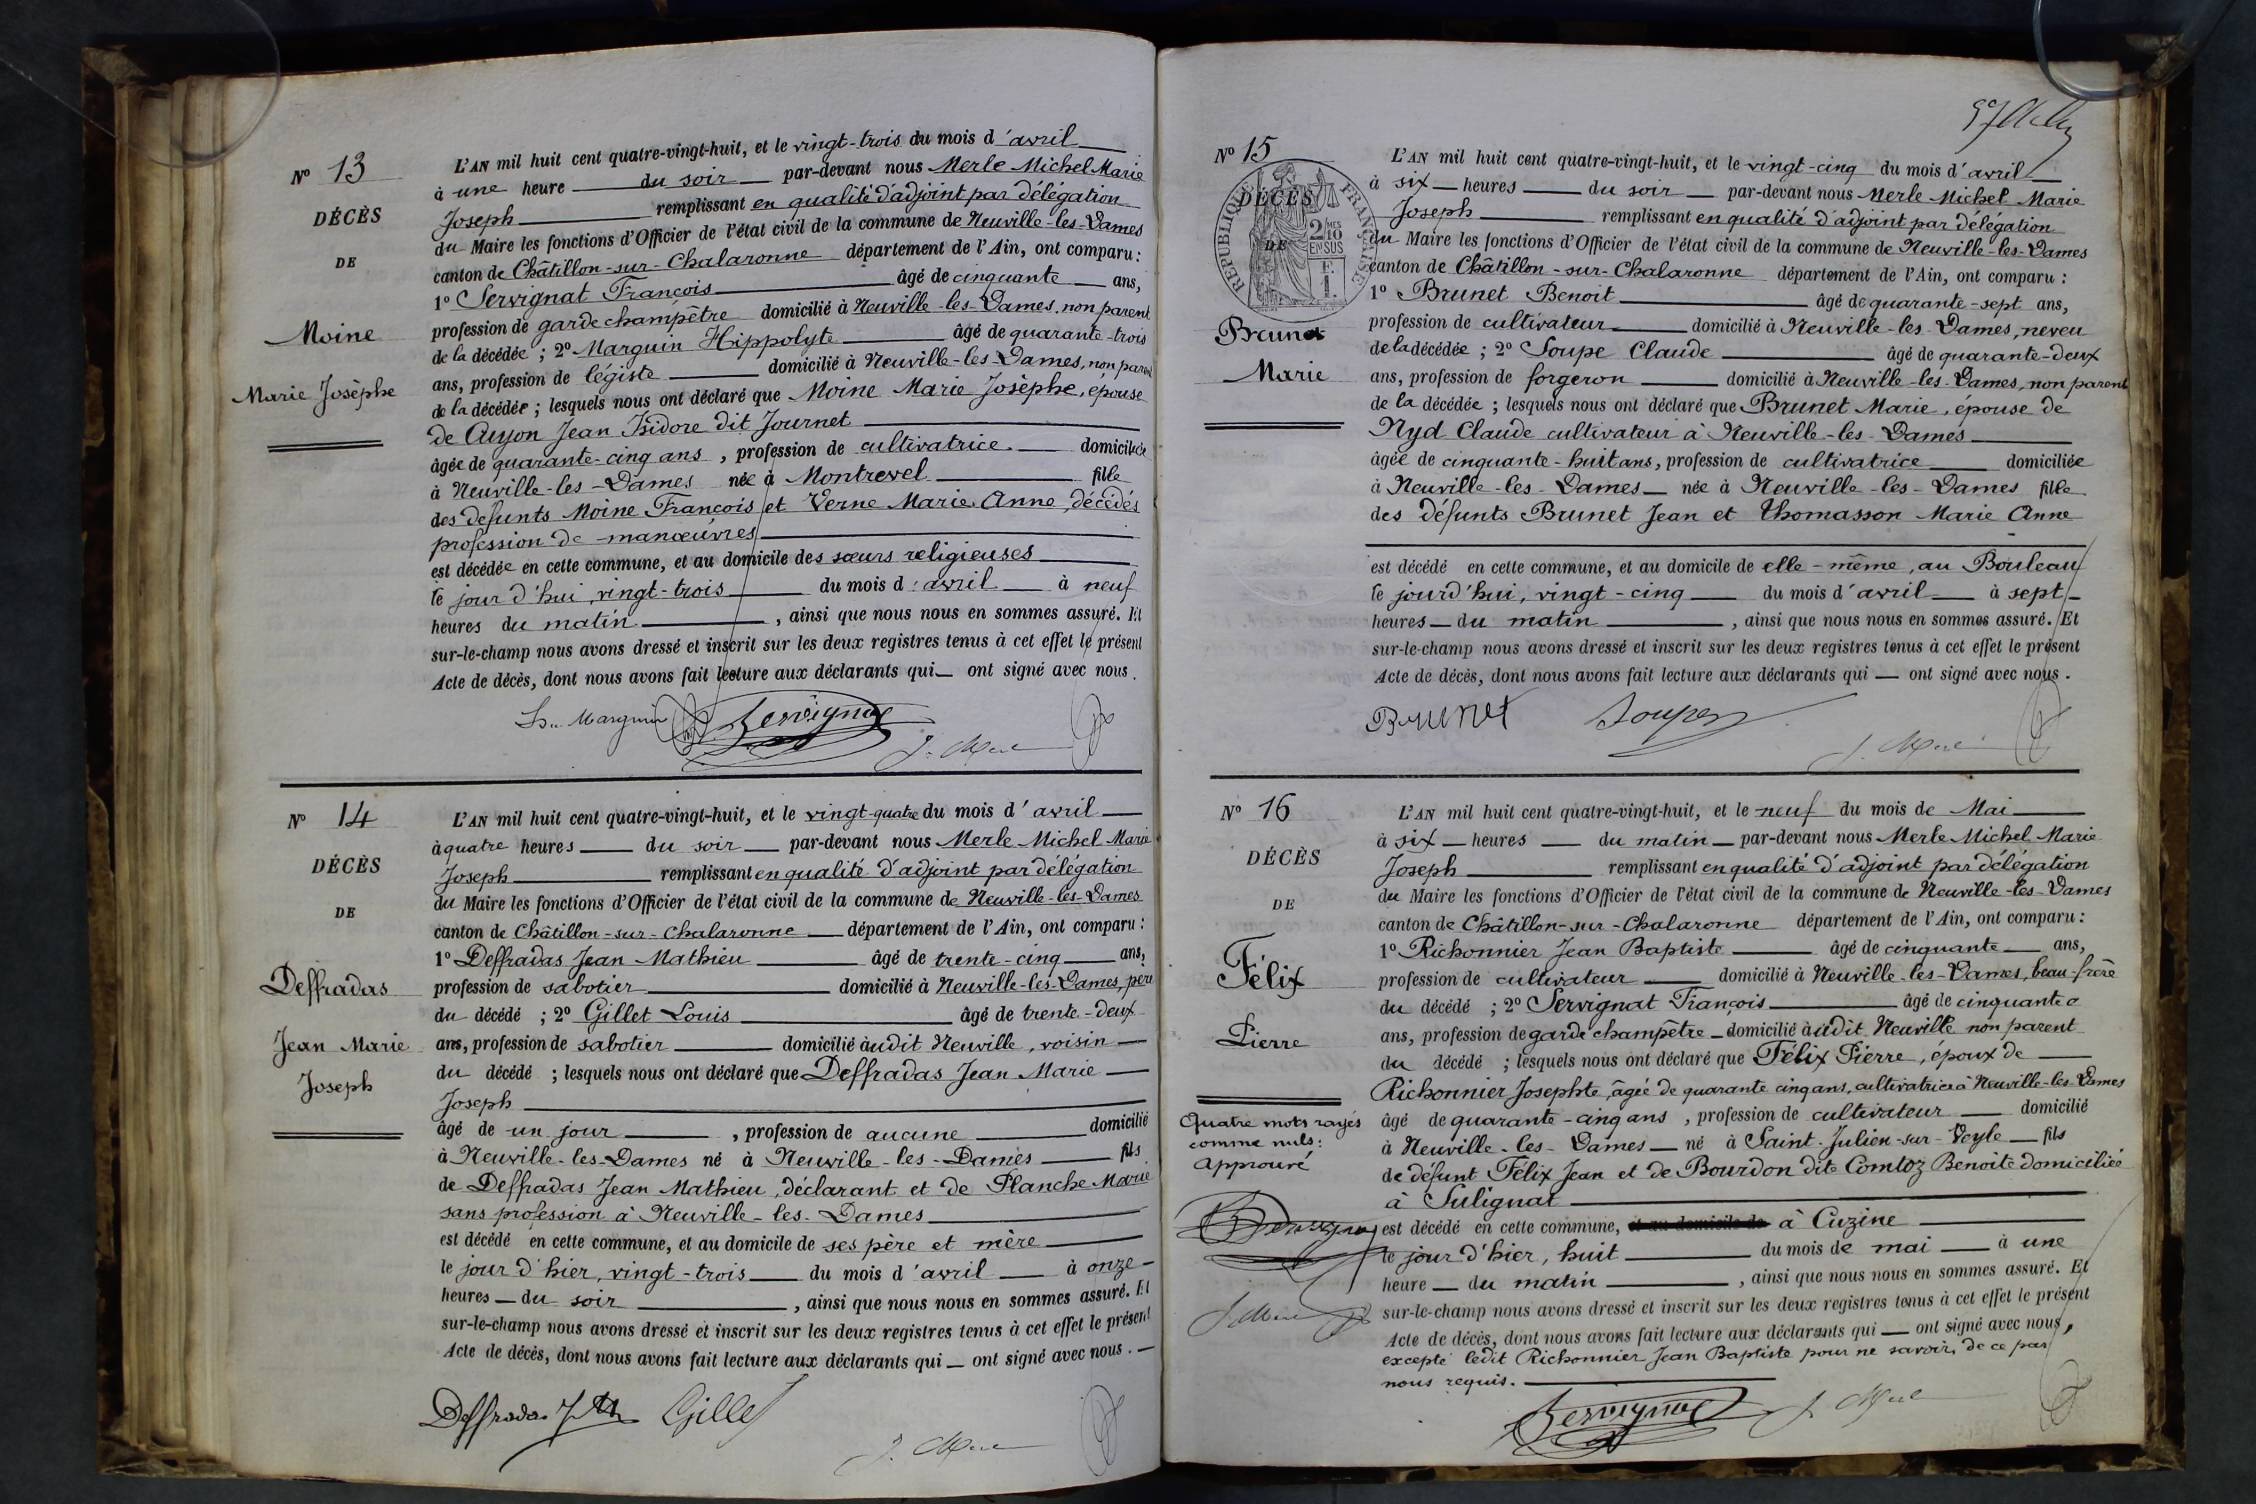 Nº 13
DÉCÈS
DE
Moine
Marie Josèphe
L'AN mil huit cent quatre-vingt-huit, et le vingt-trois du mois d'avril
à une heure du soir par-devant nous Merle Michel Marie
Joseph remplissant en qualité d'adjoint par délégation
du Maire les fonctions d'Officier de l'état civil de la commune de Neuville-les-Dames
canton de Châtillon-sur-Chalaronne département de l'Ain, ont comparu :
1º Servignat François âgé de cinquante ans,
profession de garde champêtre domicilié à Neuville-les-Dames, non parent
de la décédée ; 2º Marguin Hippolyte âgé de quarante-trois
ans, profession de légiste domicilié à Neuville-les-Dames, non parent
de la décédée ; lesquels nous ont déclaré que Moine Marie Josèphe, épouse
de Guyon Jean Isidore dit Journet
âgée de quarante-cinq ans , profession de cultivatrice domiciliée
à Neuville-les-Dames née à Montrevel fille
des défunts Moine François et Verne Marie Anne, décédés
profession de manœuvres
est décédée en cette commune, et au domicile des sœurs religieuses
le jour d'hui, vingt-trois du mois d'avril à neuf
heures du matin , ainsi que nous nous en sommes assuré. Et
sur-le-champ nous avons dressé et inscrit sur les deux registres tenus à cet effet le présent
Acte de décès, dont nous avons fait lecture aux déclarants qui ont signé avec nous.
Marguin Servignat J. Merle
Nº 14
DÉCÈS
DE
Deffradas
Jean Marie
Joseph
L'AN mil huit cent quatre-vingt-huit, et le vingt-quatre du mois d'avril
à quatre heures du soir par-devant nous Merle Michel Marie
Joseph remplissant en qualité d'adjoint par délégation
du Maire les fonctions d'Officier de l'état civil de la commune de Neuville-les-Dames
canton de Châtillon-sur-Chalaronne département de l'Ain, ont comparu :
1º Deffradas Jean Mathieu âgé de trente-cinq ans,
profession de sabotier domicilié à Neuville-les-Dames, père
du décédé ; 2º Gillet Louis âgé de trente-deux
ans, profession de sabotier domicilié àudit Neuville, voisin
du décédé ; lesquels nous ont déclaré que Deffradas Jean Marie
Joseph
âgé de un jour , profession de aucune domicilié
à Neuville-les-Dames né à Neuville-les-Dames fils
de Deffradas Jean Mathieu, déclarant et de Planche Marie
sans profession à Neuville-les-Dames
est décédé en cette commune, et au domicile de ses père et mère
le jour d'hier, vingt-trois du mois d'avril à onze
heures du soir , ainsi que nous nous en sommes assuré. Et
sur-le-champ nous avons dressé et inscrit sur les deux registres tenus à cet effet le présent
Acte de décès, dont nous avons fait lecture aux déclarants qui ont signé avec nous.
Deffradas Gillet J. Merle
Nº 15
DÉCÈS
DE
RÉPUBLIQUE FRANÇAISE
2 MES
10
EN SUS
F.
1.
Brunet
Marie
L'AN mil huit cent quatre-vingt-huit, et le vingt-cinq du mois d'avril
à six heures du soir par-devant nous Merle Michel Marie
Joseph remplissant en qualité d'adjoint par délégation
du Maire les fonctions d'Officier de l'état civil de la commune de Neuville-les-Dames
canton de Châtillon-sur-Chalaronne département de l'Ain, ont comparu :
1º Brunet Benoit âgé de quarante-sept ans,
profession de cultivateur domicilié à Neuville-les-Dames, neveu
de la décédée ; 2º Soupe Claude âgé de quarante-deux
ans, profession de forgeron domicilié à Neuville-les-Dames, non parent
de la décédée ; lesquels nous ont déclaré que Brunet Marie, épouse de
Nyd Claude cultivateur à Neuville-les-Dames
âgée de cinquante-huit ans, profession de cultivatrice domiciliée
à Neuville-les-Dames née à Neuville-les-Dames fille
des défunts Brunet Jean et Thomasson Marie Anne
est décédé en cette commune, et au domicile de elle-même, au Bouleau
le jourd'hui, vingt-cinq du mois d'avril à sept
heures du matin , ainsi que nous nous en sommes assuré. Et
sur-le-champ nous avons dressé et inscrit sur les deux registres tenus à cet effet le présent
Acte de décès, dont nous avons fait lecture aux déclarants qui ont signé avec nous.
Brunet Soupe J. Merle
Nº 16
DÉCÈS
DE
Félix
Pierre
Quatre mots rayés
comme nuls :
Approuvé
Servignat
J. Merle
L'AN mil huit cent quatre-vingt-huit, et le neuf du mois de Mai
à six heures du matin par-devant nous Merle Michel Marie
Joseph remplissant en qualité d'adjoint par délégation
du Maire les fonctions d'Officier de l'état civil de la commune de Neuville-les-Dames
canton de Châtillon-sur-Chalaronne département de l'Ain, ont comparu :
1º Richonnier Jean Baptiste âgé de cinquante ans,
profession de cultivateur domicilié à Neuville-les-Dames, beau-frère
du décédé ; 2º Servignat François âgé de cinquante
ans, profession de garde champêtre domicilié àudit Neuville non parent
du décédé ; lesquels nous ont déclaré que Félix Pierre, époux de
Richonnier Josephte, âgée de quarante cinq ans, cultivatrice à Neuville-les-Dames
âgé de quarante-cinq ans , profession de cultivateur domicilié
à Neuville-les-Dames né à Saint-Julien-sur-Veyle fils
de défunt Félix Jean et de Bourdon dite Comtoz Benoite domiciliée
à Sulignat
est décédé en cette commune, et au domicile de à Cuzine
le jour d'hier, huit du mois de mai à une
heure du matin , ainsi que nous nous en sommes assuré. Et
sur-le-champ nous avons dressé et inscrit sur les deux registres tenus à cet effet le présent
Acte de décès, dont nous avons fait lecture aux déclarants qui ont signé avec nous,
excepté ledit Richonnier Jean Baptiste pour ne savoir, de ce par
nous requis.
Servignat J. Merle